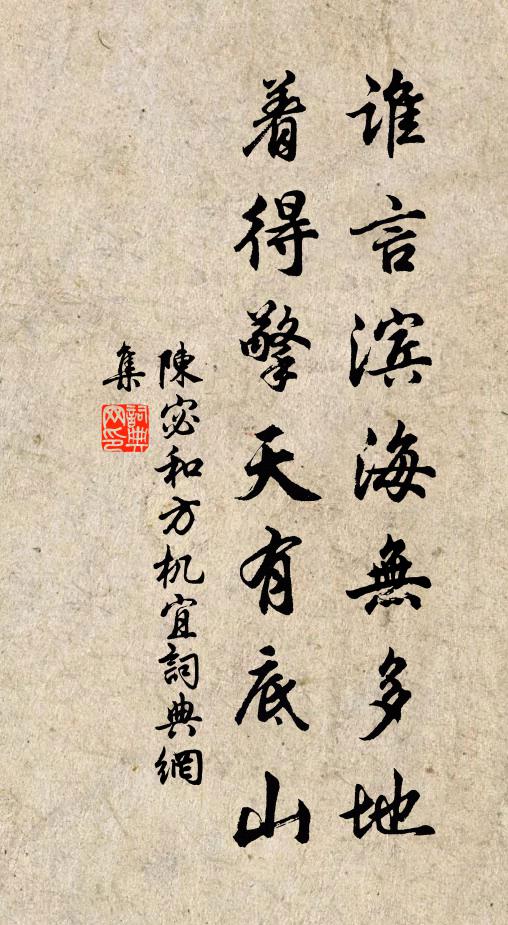 谁言滨海無多地
着得擎天有底山
陳宓和方机宜詞典網
集
詞典
网印